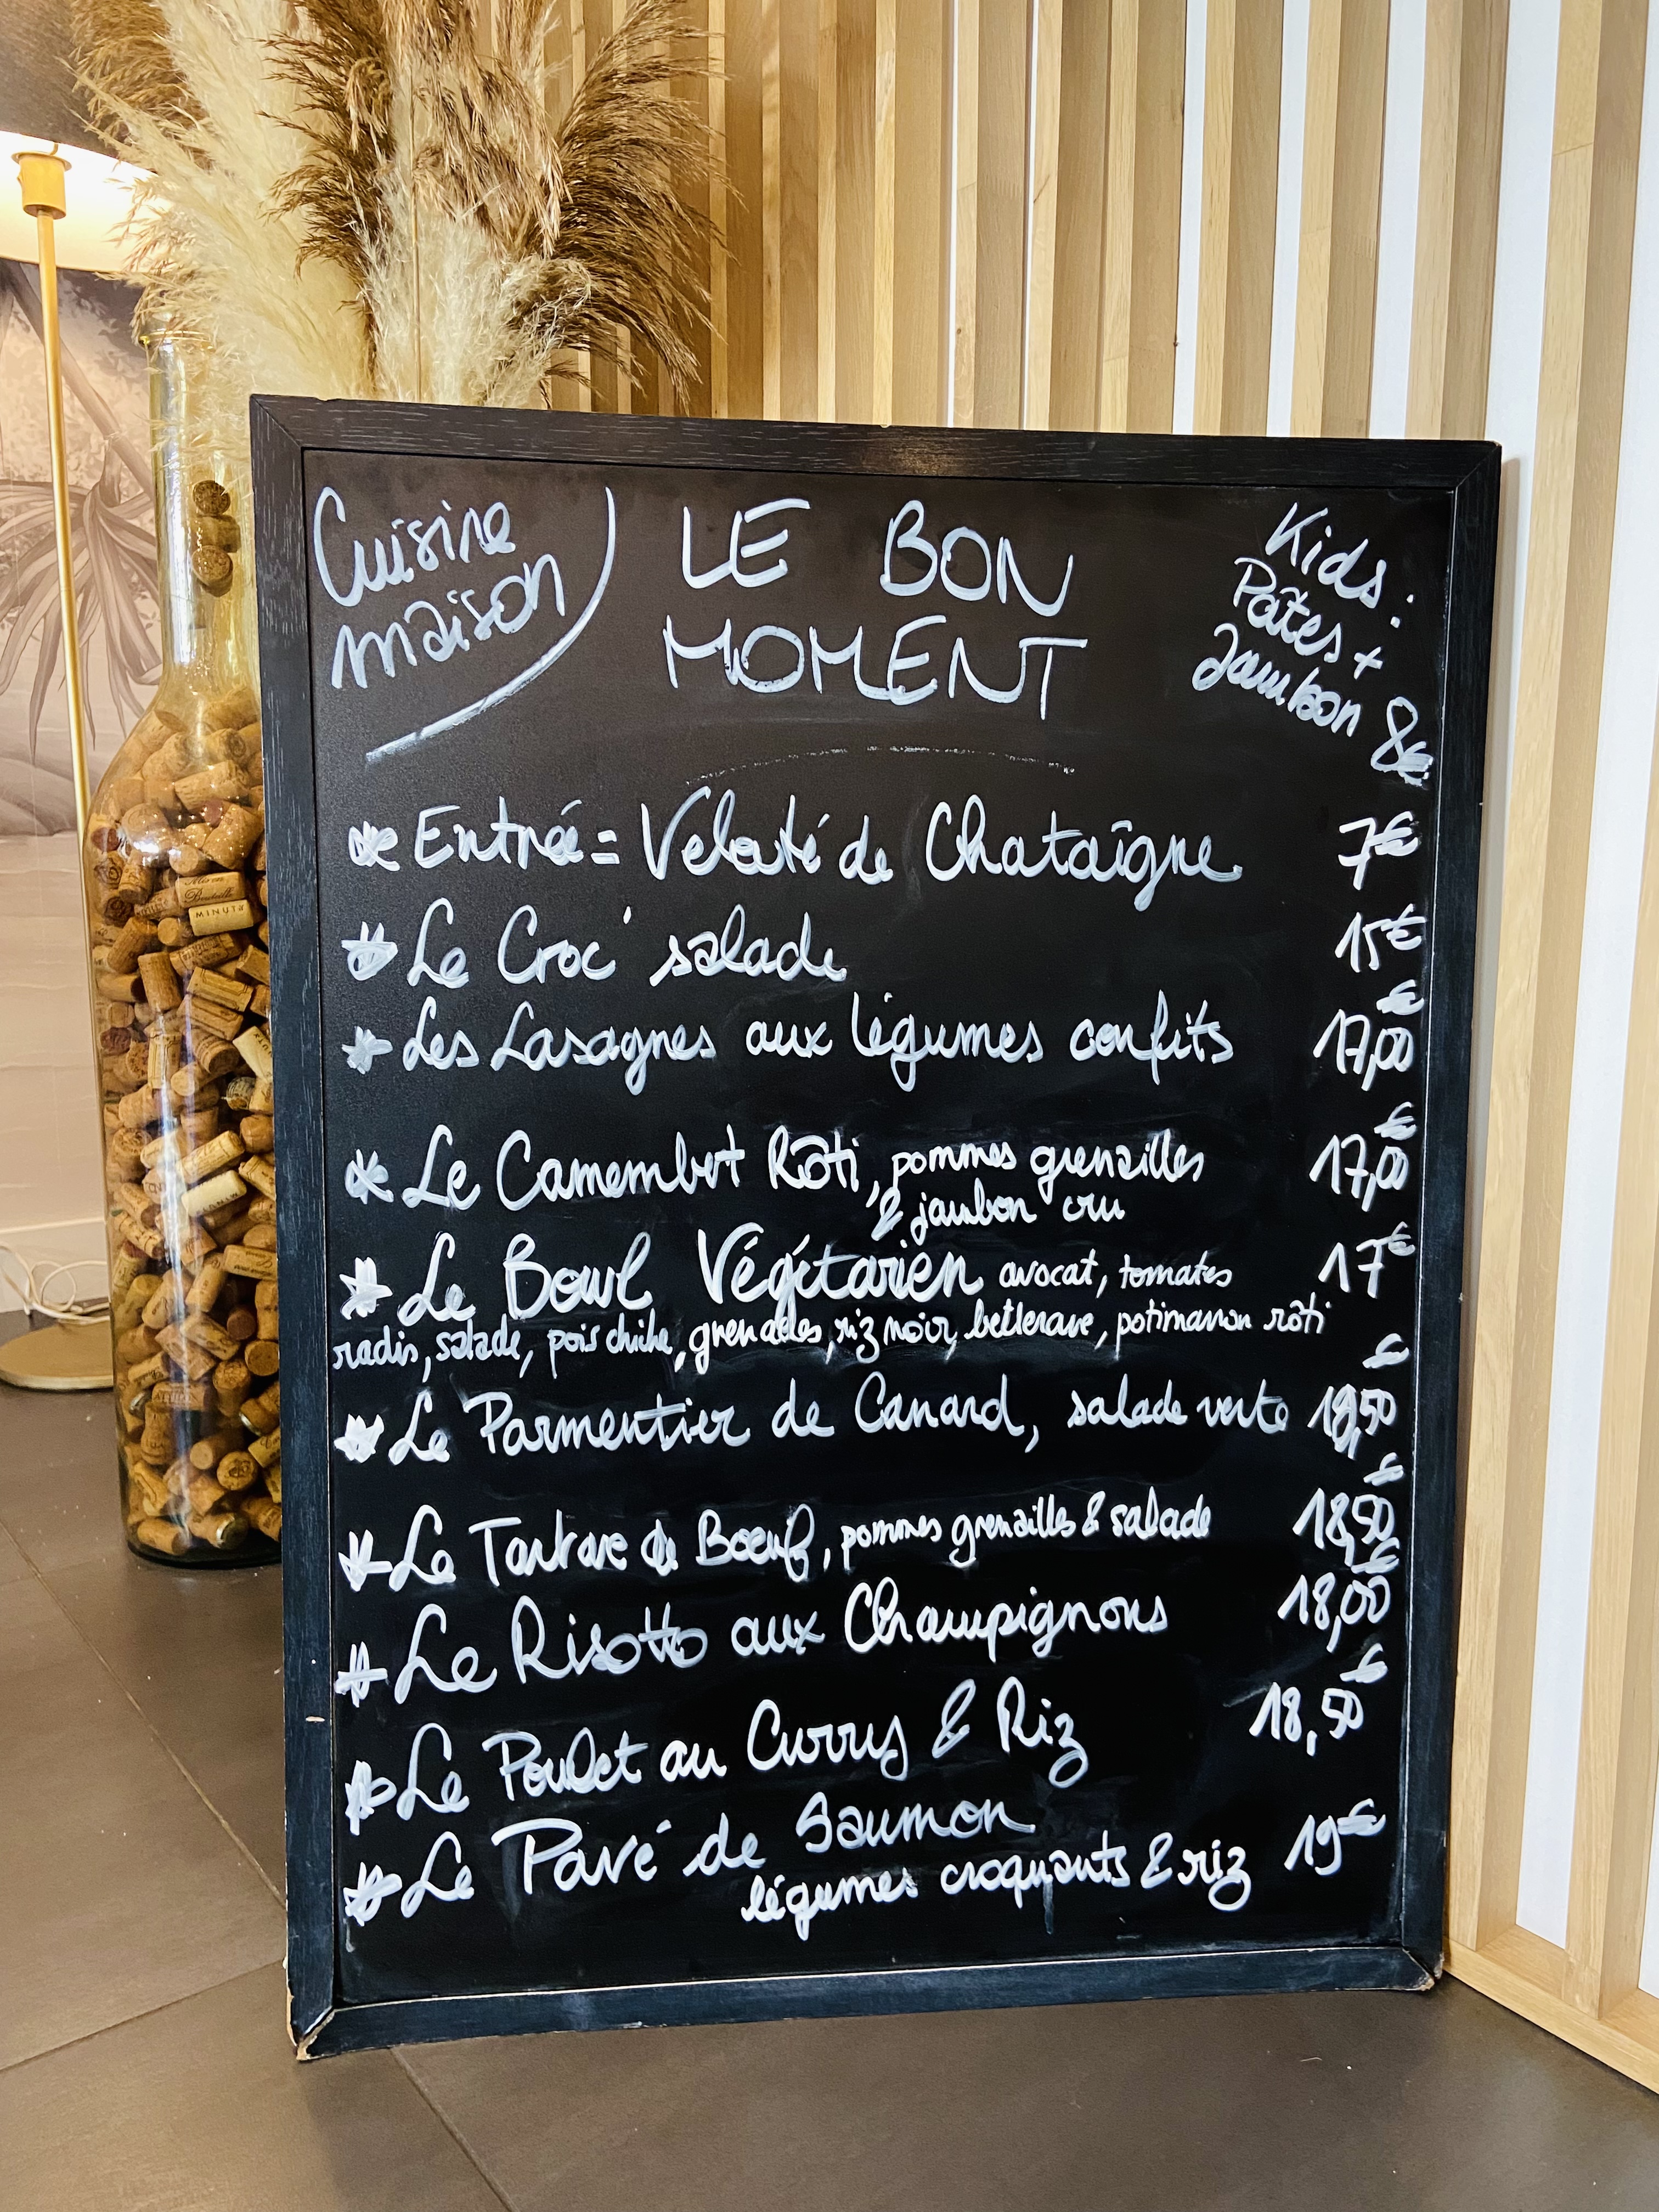 Cuisine
maison
LE BON
MOMENT
Kids :
Pâtes +
Jambon 8€
* Entrée = Velouté de Chataîgne 7€
* Le Croc' salade 15€
* Les Lasagnes aux légumes confits 17,00€
* Le Camembert Rôti, pommes grenailles 17,00€
& jambon cru
* Le Bowl Végétarien avocat, tomates 17€
radis, salade, pois chiche, grenades, riz noir, betterave, potimarron rôti
* Le Parmentier de Canard, salade verte €
* Le Tartare de Boeuf, pommes grenailles & salade 18,50€
* Le Risotto aux Champignons 18,00€
* Le Poulet au Curry & Riz 18,50€
* Le Pavé de Saumon 19€
légumes croquants & riz
MINUTY